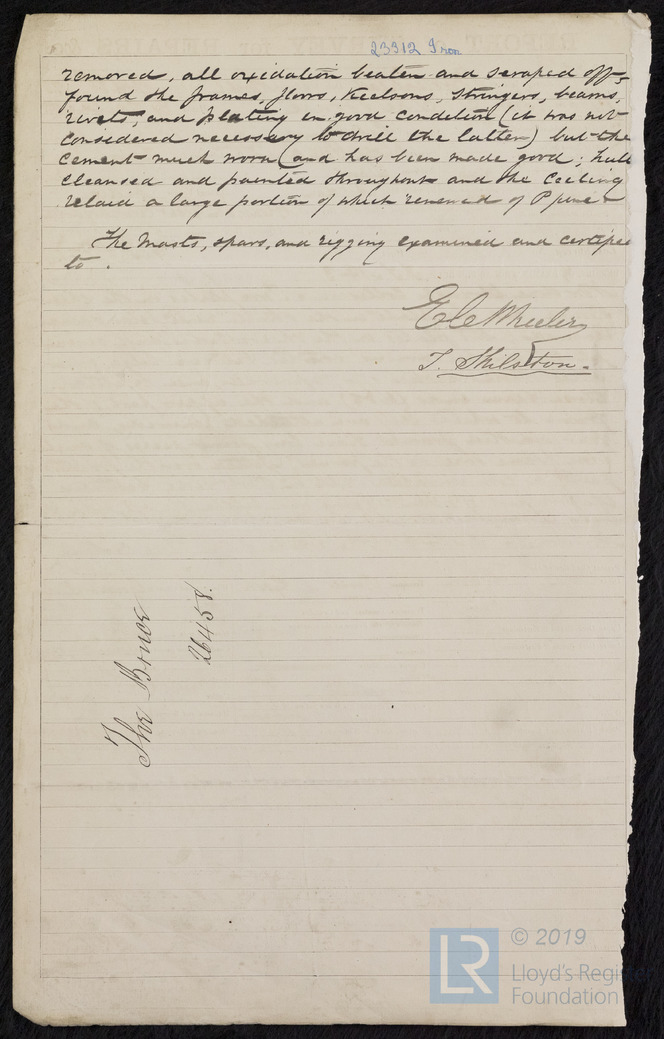 23312 Iron
removed, all oxidation beaten and scraped off,
found the frames, floors, Keelsons, Stringers, beams,
rivets, and plating in good condition (it was not
considered necessary to drill the latter) but the
cement much worn (and has been made good; hull
cleansed and painted throughout and the Ceeling
relaid a large portion of which renewed of P pine
The Masts, spars, and rigging examined and certified
to.
E C Wheeler
T. Shilston.
The Bruce
26458.
LR © 2019
Lloyd's Register
Foundation